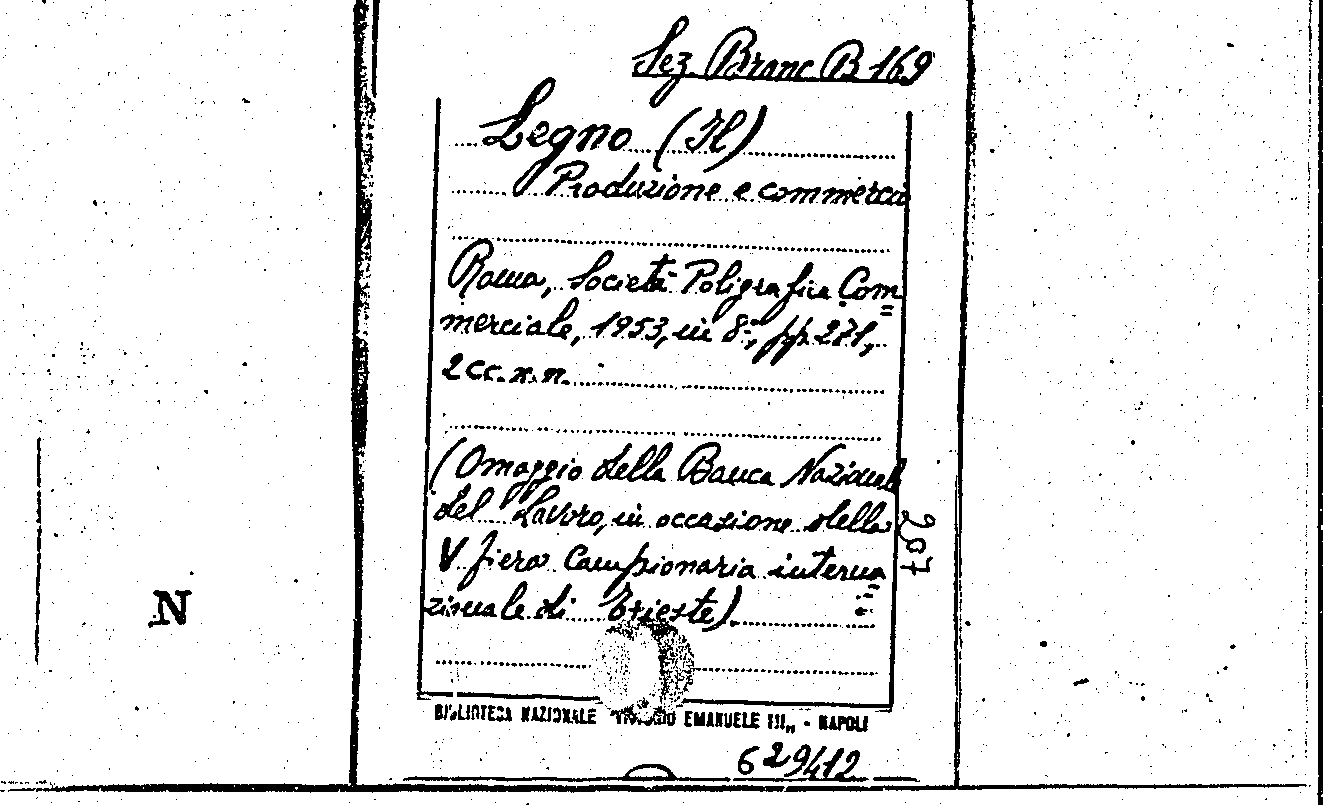 Sez. Branc B 169
Legno (Il)
Produzione e commercio
Roma, Società Poligrafica Com=
merciale, 1953, in 8°, pp. 271,
2 cc. n. n.
(Omaggio della Banca Nazionale
del Lavoro, in occasione della
V fiera Campionaria interna=
zionale di Trieste).
207
N
BIBLIOTECA NAZIONALE "VITTORIO EMANUELE III„ - NAPOLI
629412